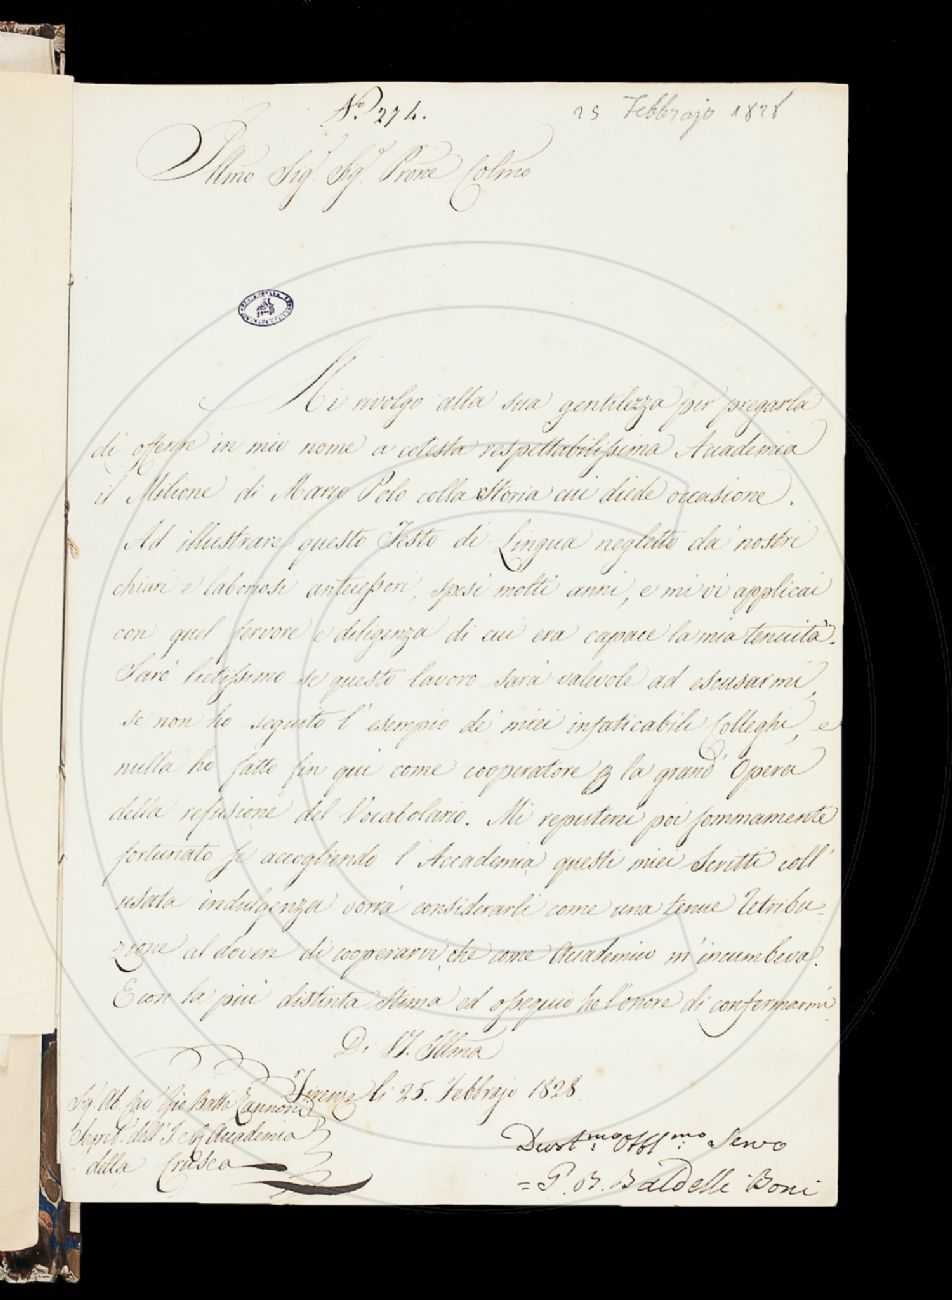 N.º 274.
25 Febbrajo 1828
Illmo Sig.r Sig.r Prone Colmo
Mi rivolgo alla sua gentilezza per pregarla
di offerire in mio nome a cotesta respettabilissima Accademia
il Milione di Marco Polo colla Storia cui diede occasione.
Ad illustrare questo Testo di Lingua negletto da' nostri
chiari e laboriosi antecessori, spesi molti anni, e mi vi applicai
con quel fervore e diligenza di cui era capace la mia tenuità.
Sarò lietissimo se questo lavoro sarà valevole ad escusarmi,
se non ho seguito l'esempio de' miei infaticabili Colleghi, e
nulla ho fatto fin qui come cooperatore la grand' Opera
della refusione del Vocabolario. Mi reputerei poi sommamente
fortunato se accogliendo l'Accademia questi miei Scritti coll'
usata indulgenza vorrà considerarli come una tenue retribu-
zione al dovere di cooperarvi, che come Accademico m'incombeva.
E con la più distinta stima ed ossequio ho l'onore di confermarmi
Di V.S. Illma
Firenze li 25. Febbrajo 1828.
Sig. Ab. Gio Batta Zannoni
Segret. dell' I. e R. Accademia
della Crusca
Devot.mo Obbl.mo Servo
= G. B. Baldelli Boni